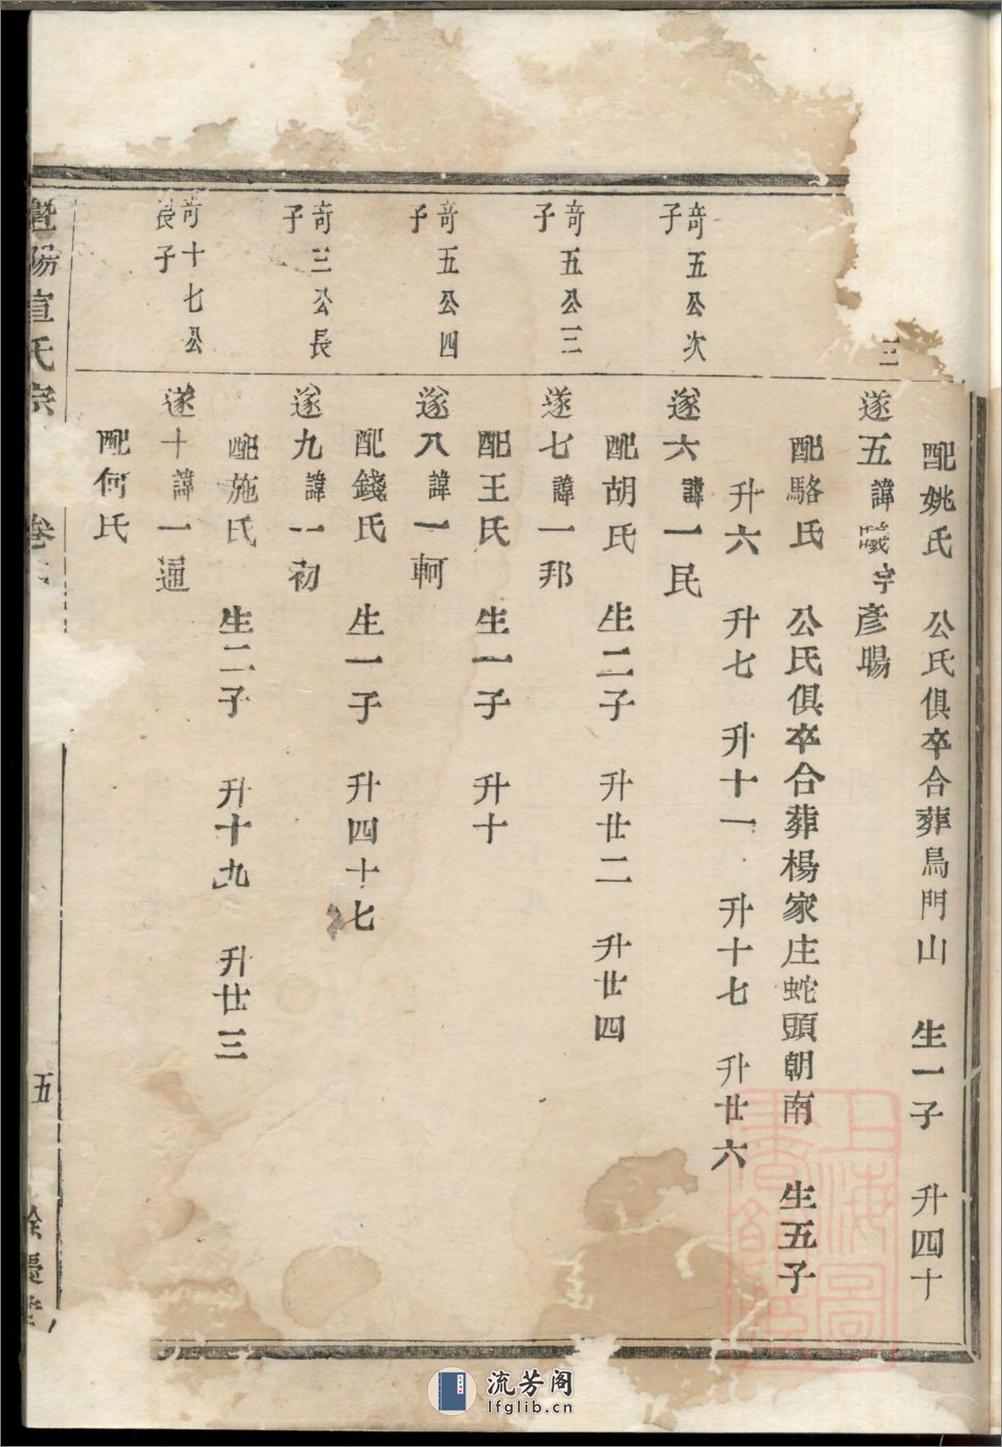 配姚氏 公氏俱卒合葬鳥門山 生一子 升四十
三
遂五諱 字彥暘
配駱氏 公氏俱卒合葬楊家庄蛇頭朝南 生五子
升六 升七 升十一 升十七 升廿六
奇五公次
子
遂六諱一民
配胡氏 生二子 升廿二 升廿四
奇五公三
子
遂七諱一邦
配王氏 生一子 升十
奇五公四
子
遂八諱一軻
配錢氏 生一子 升四十七
奇三公長
子
遂九諱一初
配施氏 生二子 升十九 升廿三
奇十七公
長子
遂十諱一通
配何氏
暨陽宣氏宗
卷
五
餘慶堂
上海圖
流芳阁
lfglib.cn